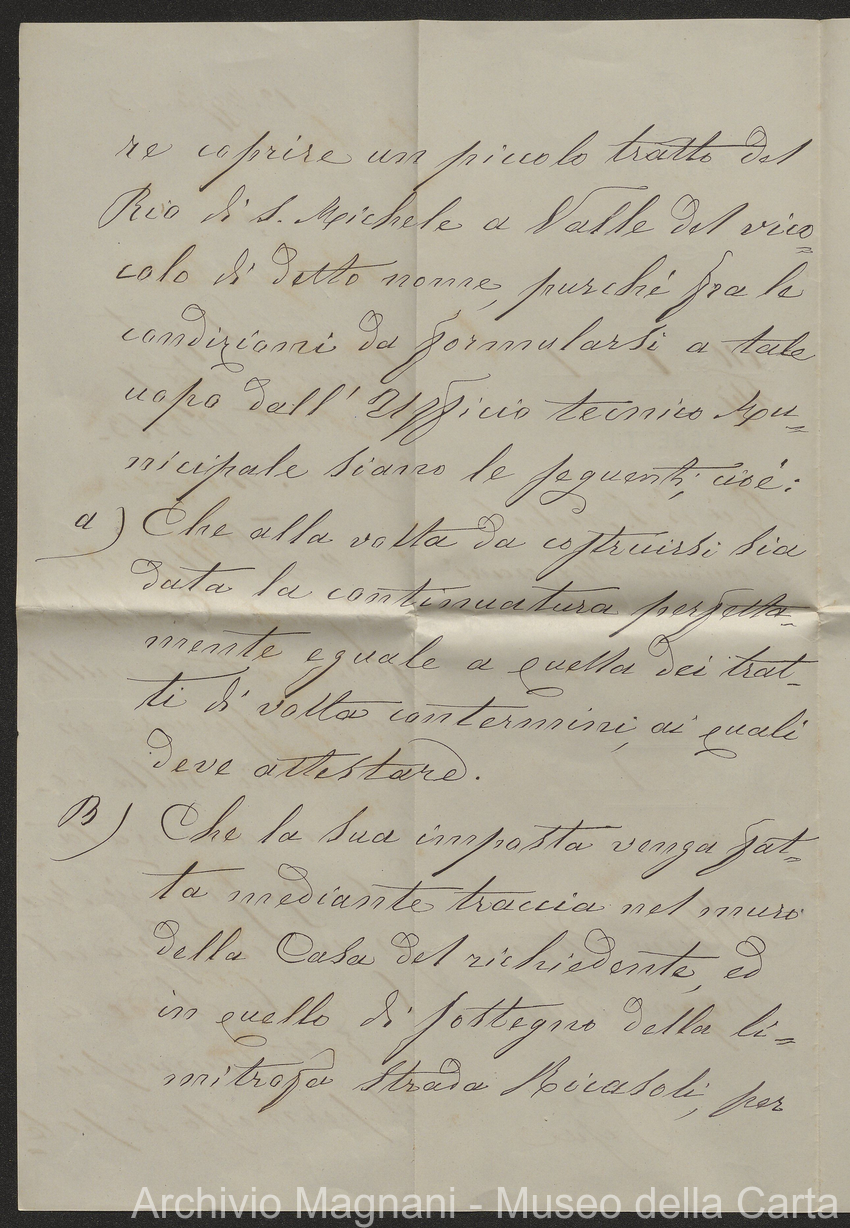 re coprire un piccolo tratto del
Rio di S. Michele a Valle del vico=
colo di detto nome, purché fra le
condizioni da formularsi a tale
uopo dall' Ufficio tecnico Mu=
nicipale siano le seguenti, cioé:
a) Che alla volta da costruirsi sia
data la continuatura perfetta=
mente eguale a quella dei trat=
ti di volta contermini, ai quali
deve attestare.
B) Che la sua imposta venga fat=
ta mediante traccia nel muro
della Casa del richiedente, ed
in quello di sostegno della li=
mitrofa strada Ricasoli, per
Archivio Magnani - Museo della Carta